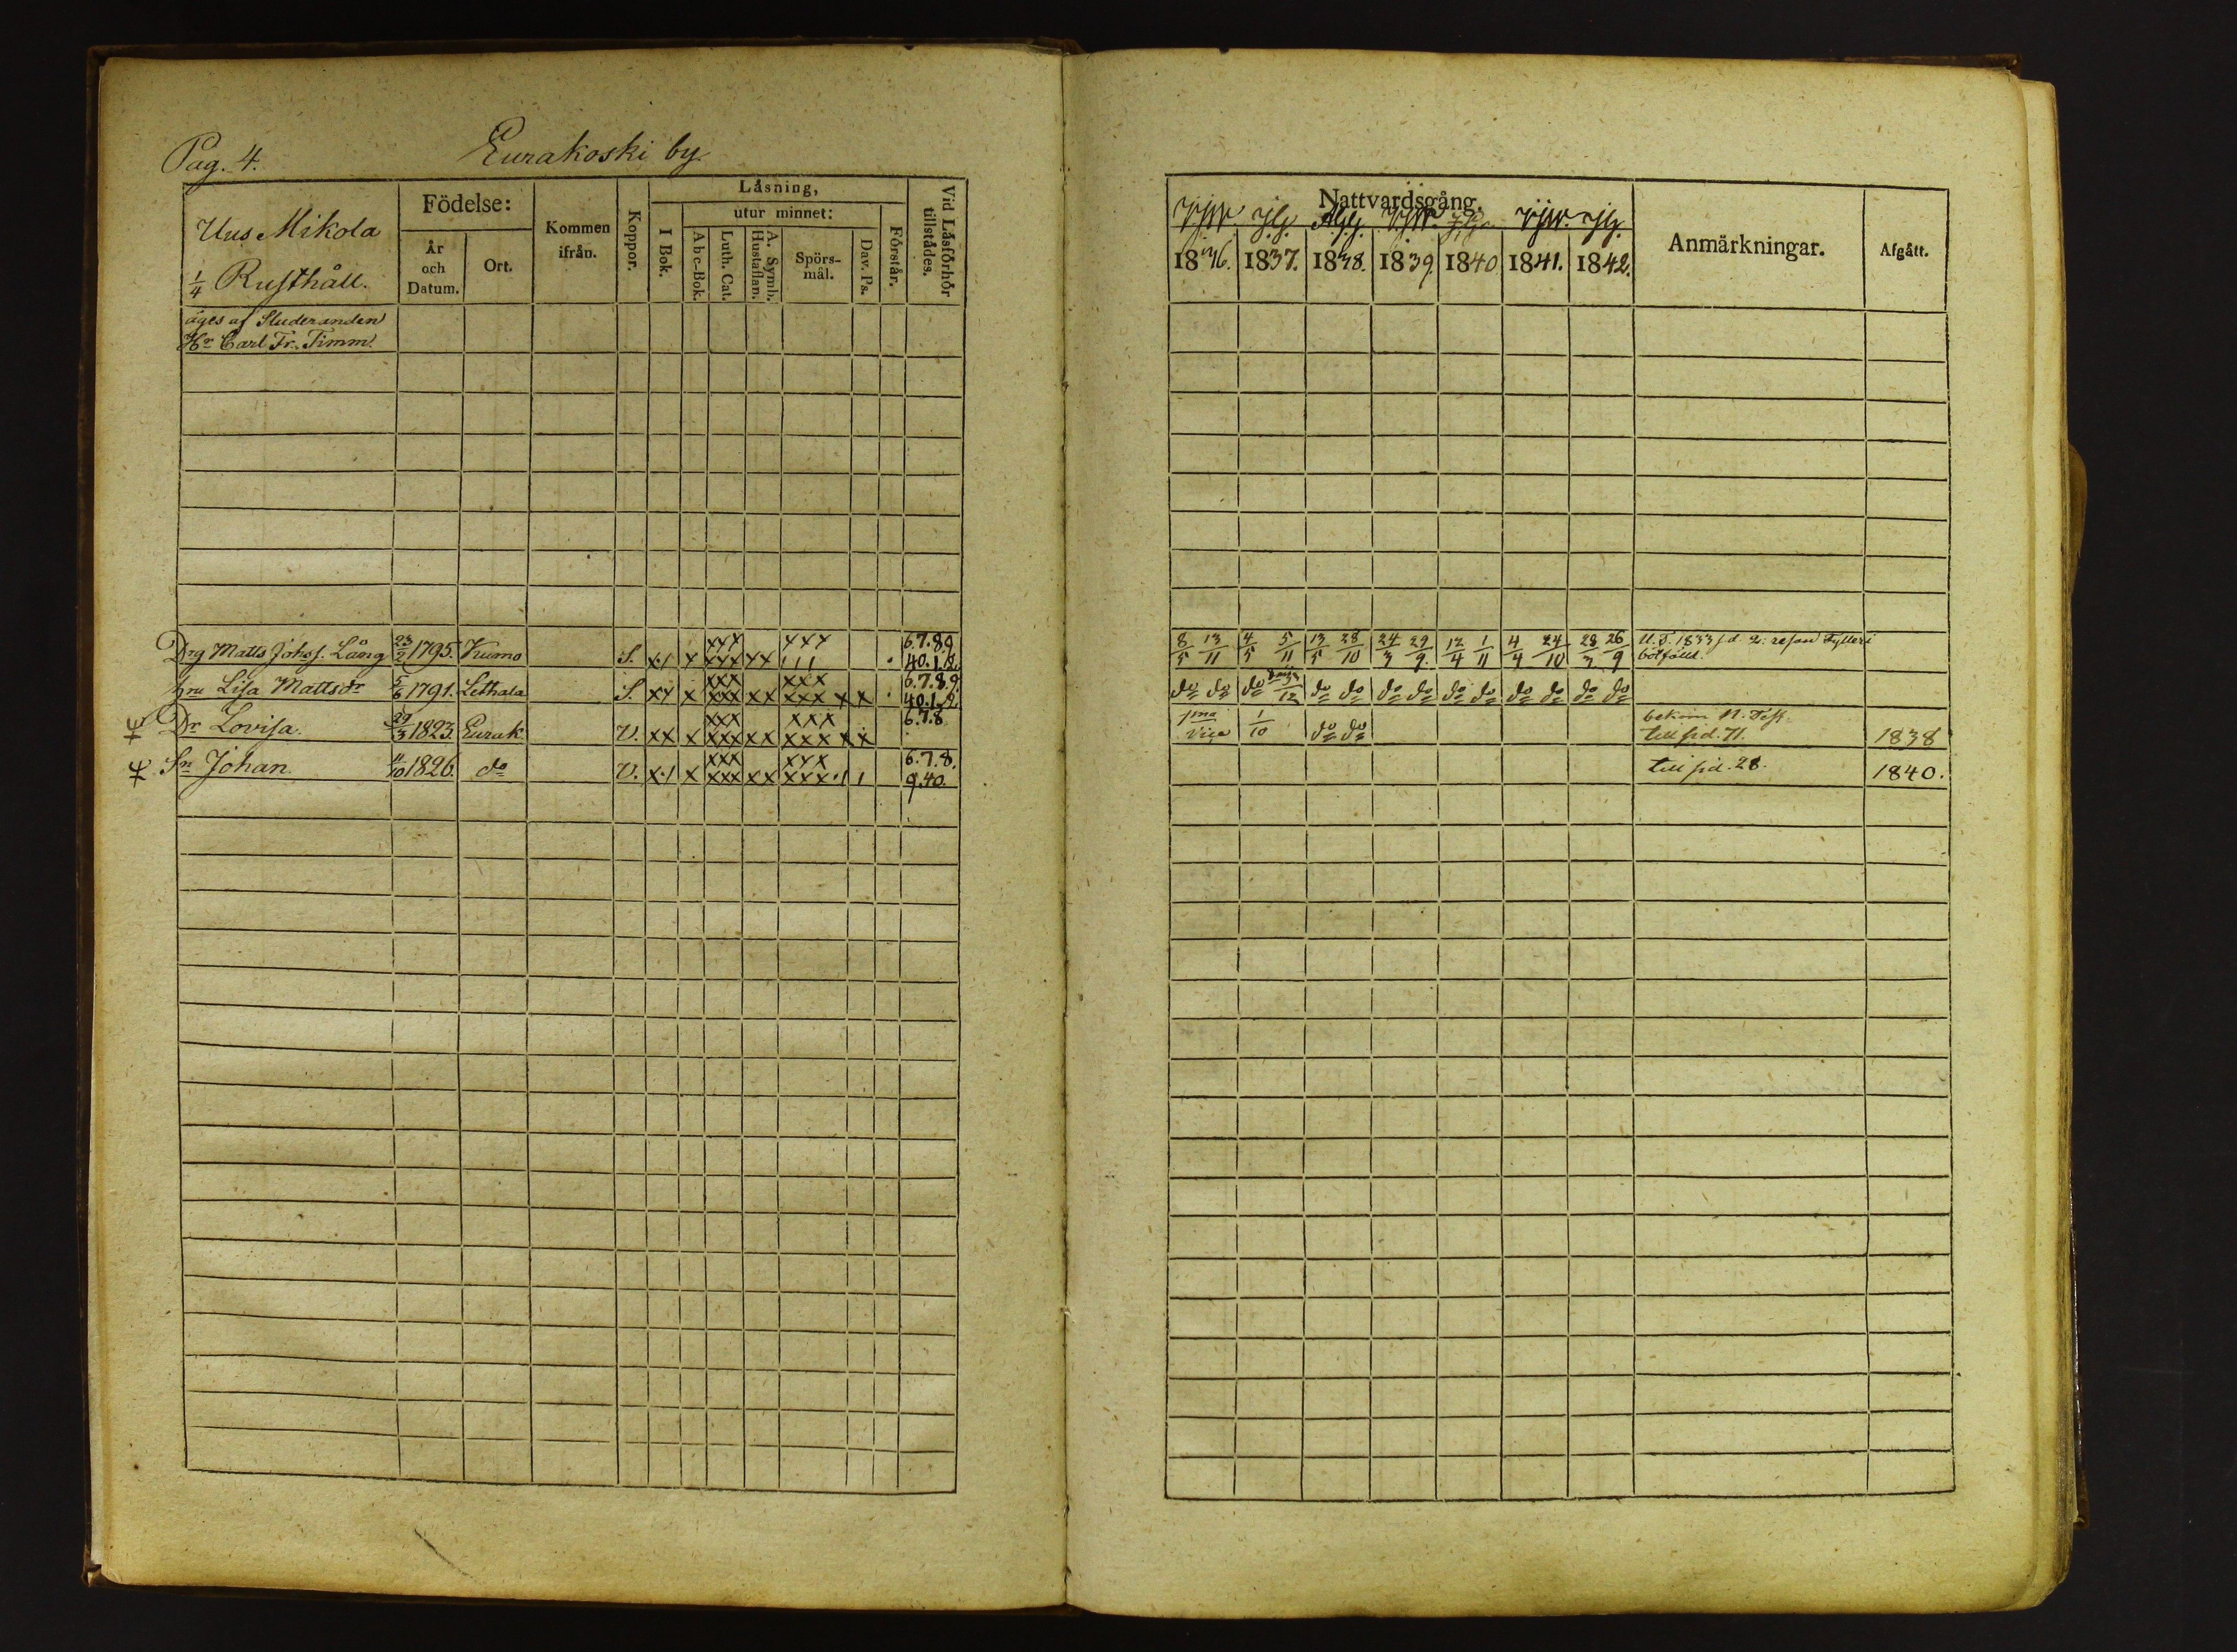 Pag. 4.
Eurakoski by
Uus Mikola
1/4 Rusthåll.
Födelse:
År och Datum.
Ort.
Kommen ifrån.
Koppor.
Låsning,
I Bok.
utur minnet:
Abc-Bok.
Luth. Cat.
A. Symb. Hustaflan.
Spörs-mål.
Dav. Ps.
Förstår.
Vid Låsförhör tillstådes.
Nattvardsgång.
1836. 1837. 1838. 1839. 1840. 1841. 1842.
Anmärkningar.
Afgått.
äges af Studeranden
Hr Carl Fr. Timm.
Drg Matts Johss. Lång 23/2 1795. Kumo S. x1 x xxx xxx xx xxx 111 6.7.8.9 40.1.2. 8/5 13/11 4/5 5/11 13/5 28/10 24/3 29/9 12/4 1/11 4/4 24/10 28/3 26/9 U.T. 1833 f.d. 2: resan Fylleri
botfälld.
hru Lisa Mattsdr 5/6 1791. Lethala S. xx x xxx xxx xx xxx xxx x x 6.7.8.9. 40.1.2. do do do 12 do do do do do do do do do do
Dr Lovisa. 29/3 1823. Eurak V. xx x xxx xxx xx xxx xxx x x 6.7.8. 1ma Vice 1/10 do do bekom N. Test.
till sid. 71. 1838
Sn Johan. 11/10 1826. do V. x1 x xxx xxx xx xxx xxx 1 1 6.7.8. 9.40. till sid. 28. 1840.